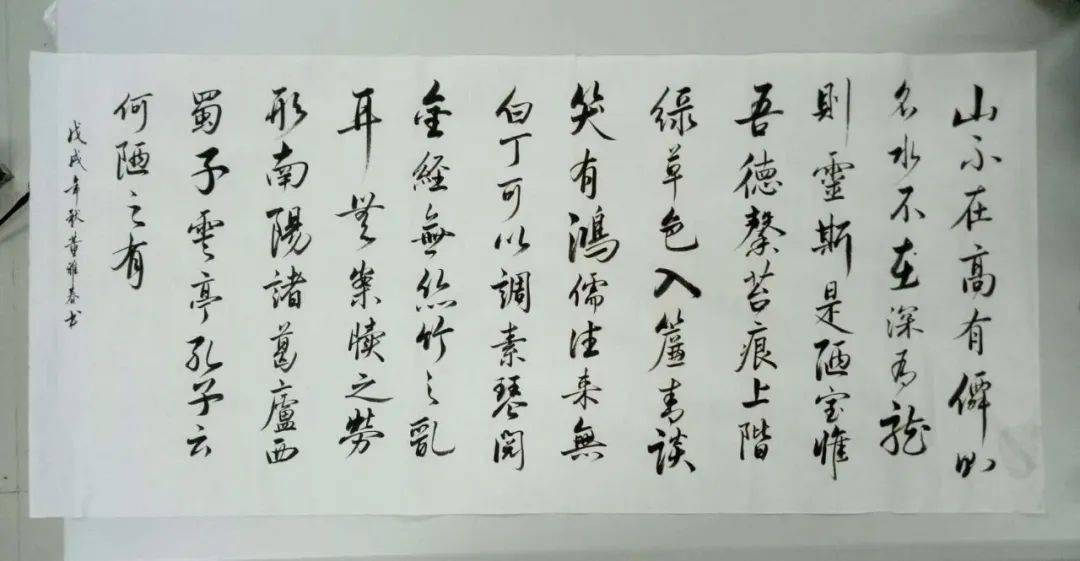 山不在高有僊則
名水不在深有龍
則靈斯是陋室惟
吾德馨苔痕上階
綠草色入簾青談
笑有鴻儒往来無
白丁可以調素琴閱
金經無絲竹之亂
耳無案牘之勞
形南陽諸葛廬西
蜀子雲亭孔子云
何陋之有
戊戌年秋黄雅春书